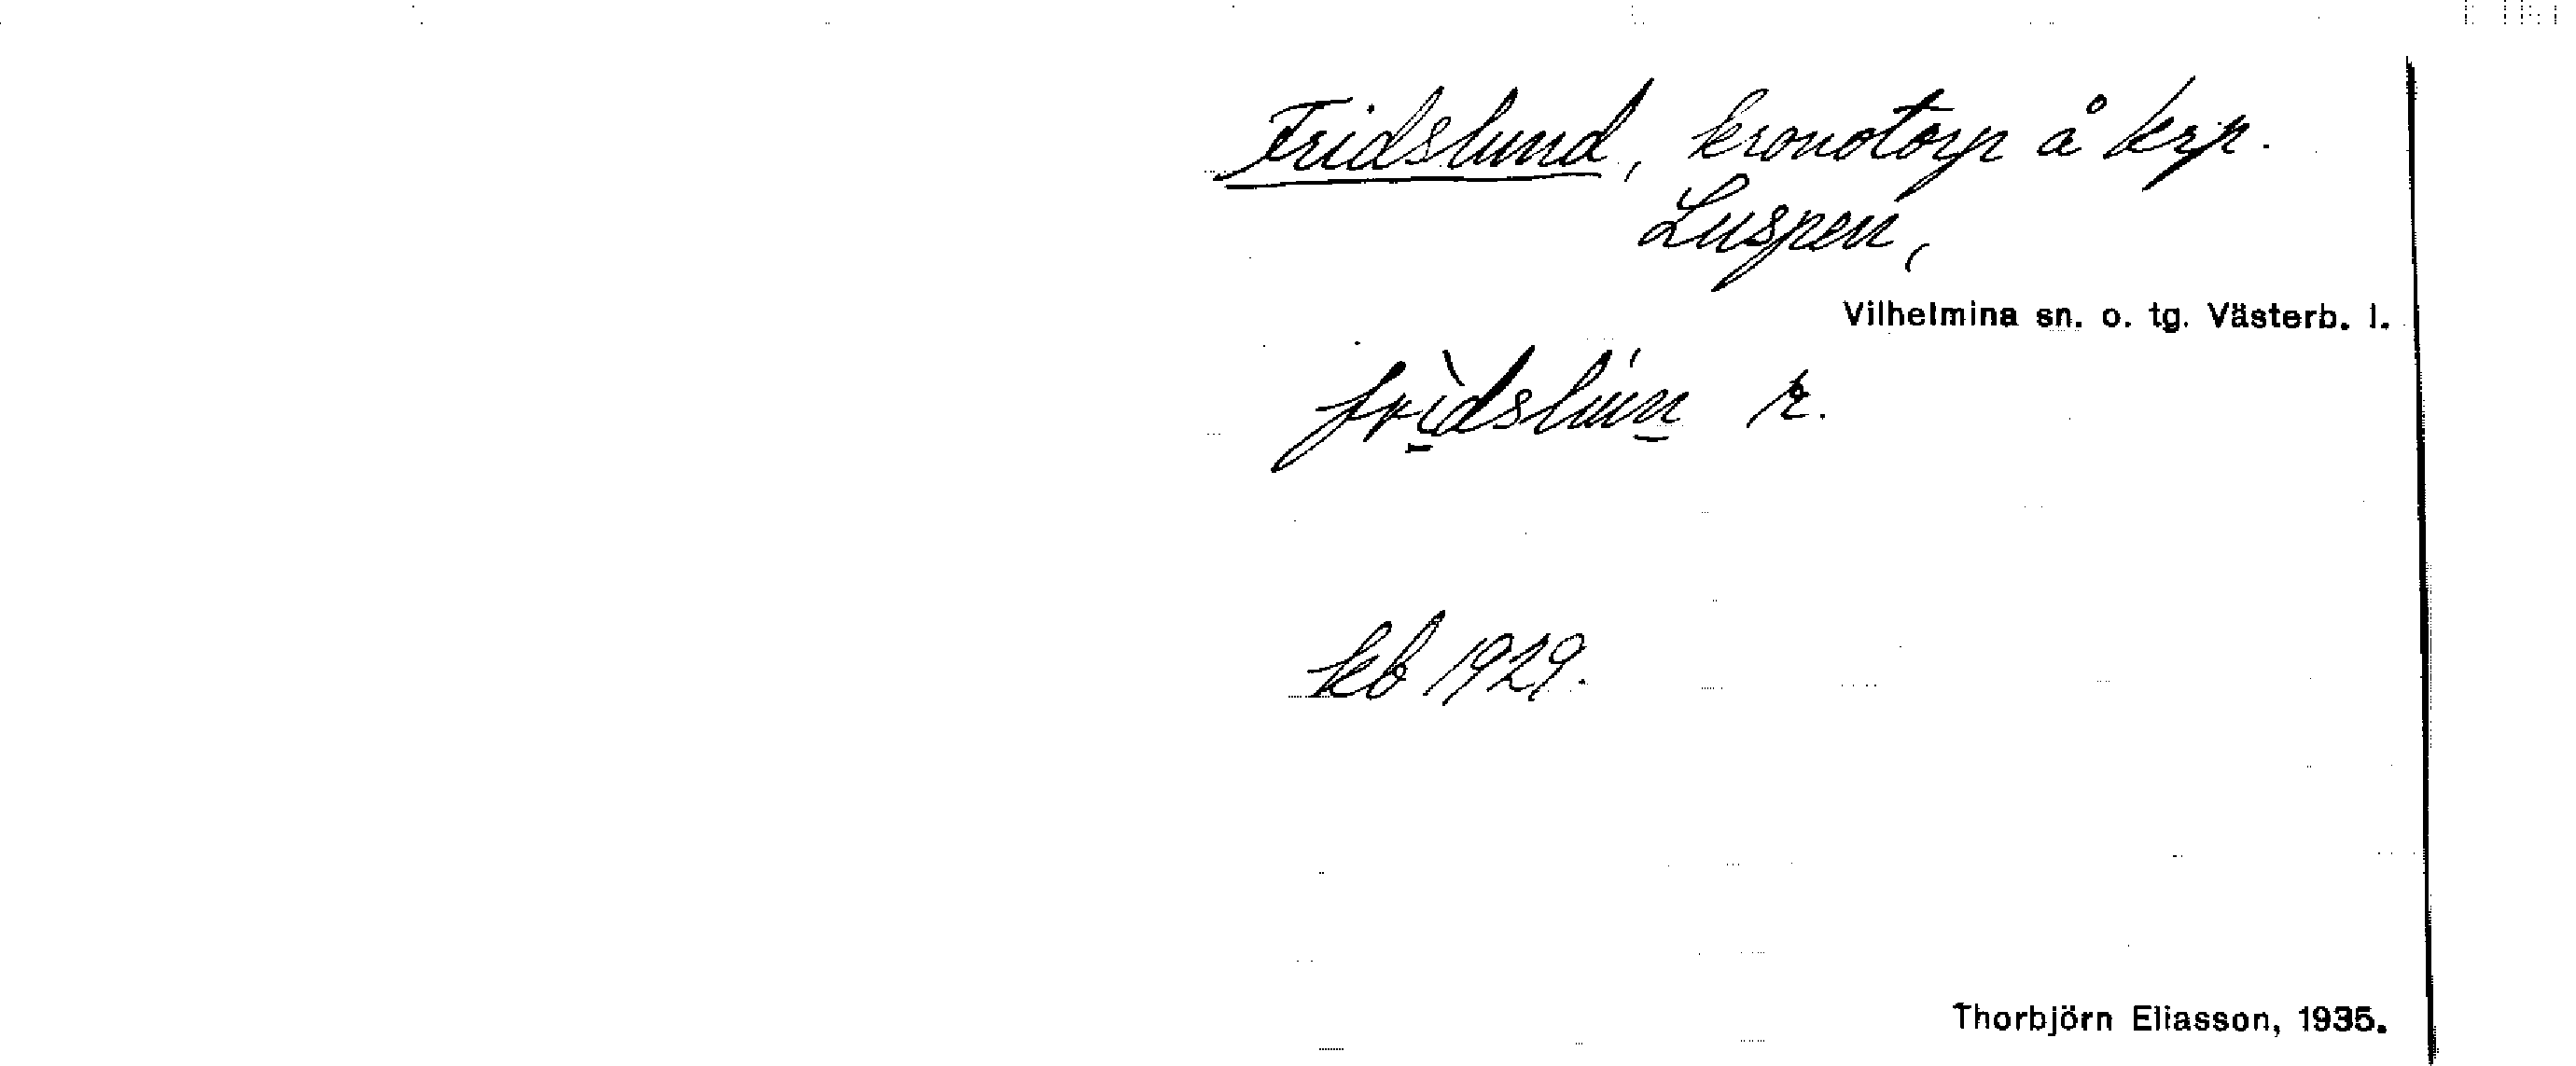 Fridslund, kronotorp å krp.
Luspen,
Vilhelmina sn. o. tg. Västerb. l.
frì̲dslún̲ r.
kb 1929.
Thorbjörn Eliasson, 1935.